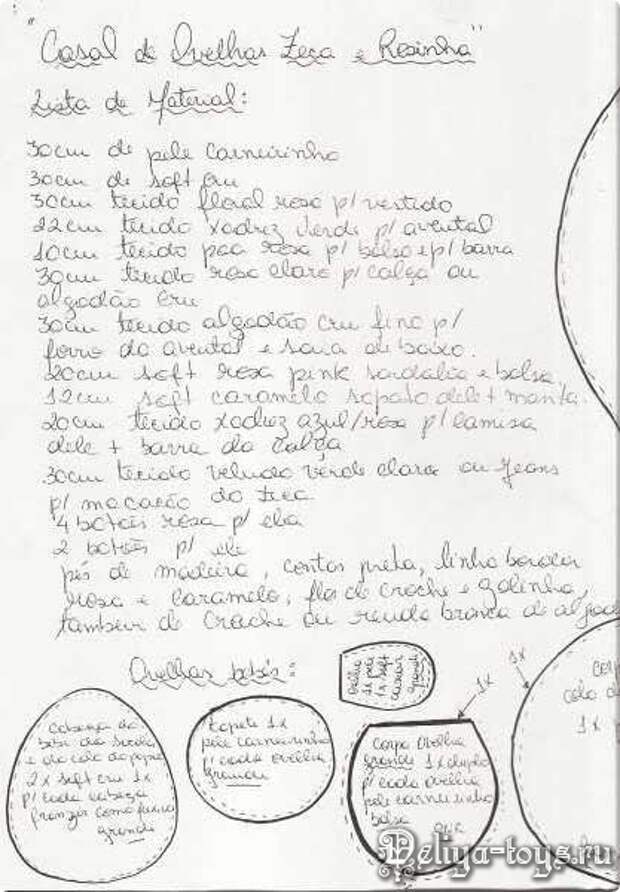 "Casal de Ovelhas Zeca e Rosinha"
Lista de Material:
30cm de pele carneirinho
30cm de soft cru
30cm tecido floral rosa p/ vestido
22cm tecido xadrez verde p/ avental
10cm tecido poa rosa p/ bolso e p/ barra
30cm tecido rosa claro p/ calça ou
algodão cru
30cm tecido algodão cru fino p/
forro do avental e saia de baixo.
20cm soft rosa pink sandalia e bolsa.
12cm soft caramelo sapato dele + manta.
20cm tecido xadrez azul/rosa p/ camisa
dele + barra da calça
30cm tecido veludo verde claro ou jeans
p/ macacão do Zeca
4 botões rosa p/ ela
2 botões p/ ele
pés de madeira, contas preta, linha bordar
rosa e caramelo, flor de croche e golinha,
tambem de croche ou renda branca de algod
Ovelhas bebês:
Orelha
1x pele
1x soft
grande
1x
1x
Cabeça do
e do colo do
2x soft cru 1x
p/ cada cabeça
franzir como fuxico
grande
Tapete 1x
pele carneirinho
p/ cada ovelha
grande
Corpo Ovelha
grande 1x duplo
p/ cada ovelha
pele carneirinho
bolsa
corp
colo d
1x p
Deliya-toys.ru